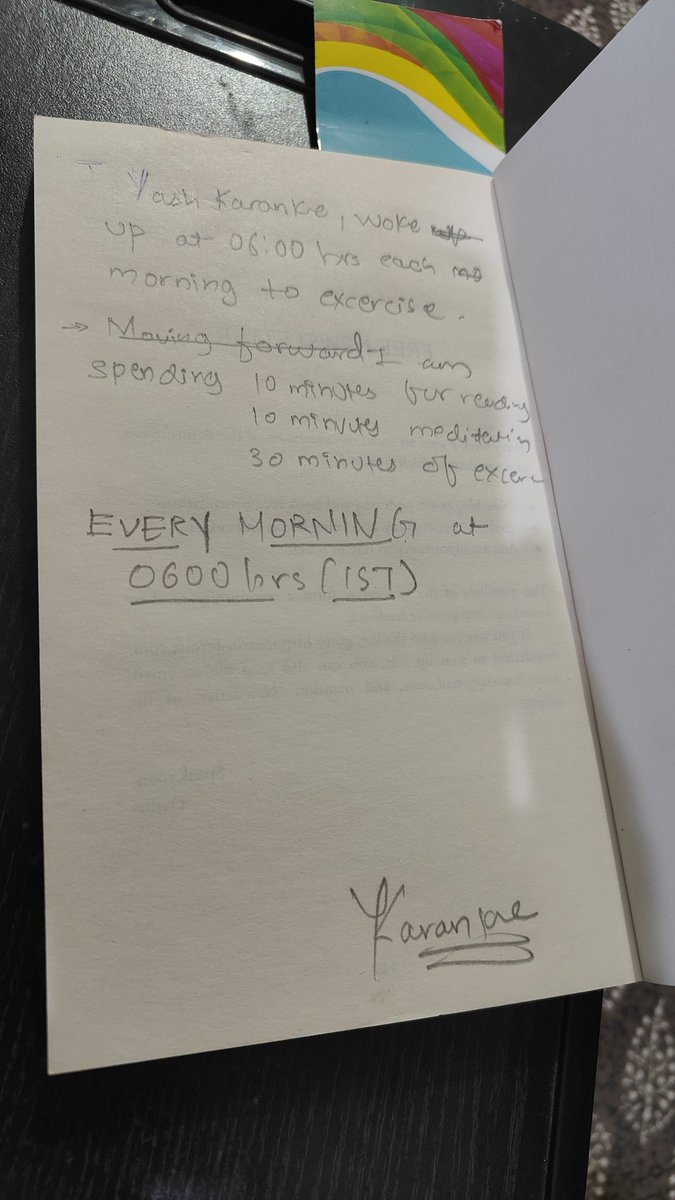 I Yash Karanke, woke
up at 06:00 hrs each
morning to excercise.
→ Moving forward I am
spending 10 minutes for reading
10 minutes meditatin
30 minutes of excer
EVERY MORNING at
0600 hrs (IST)
YKaranke